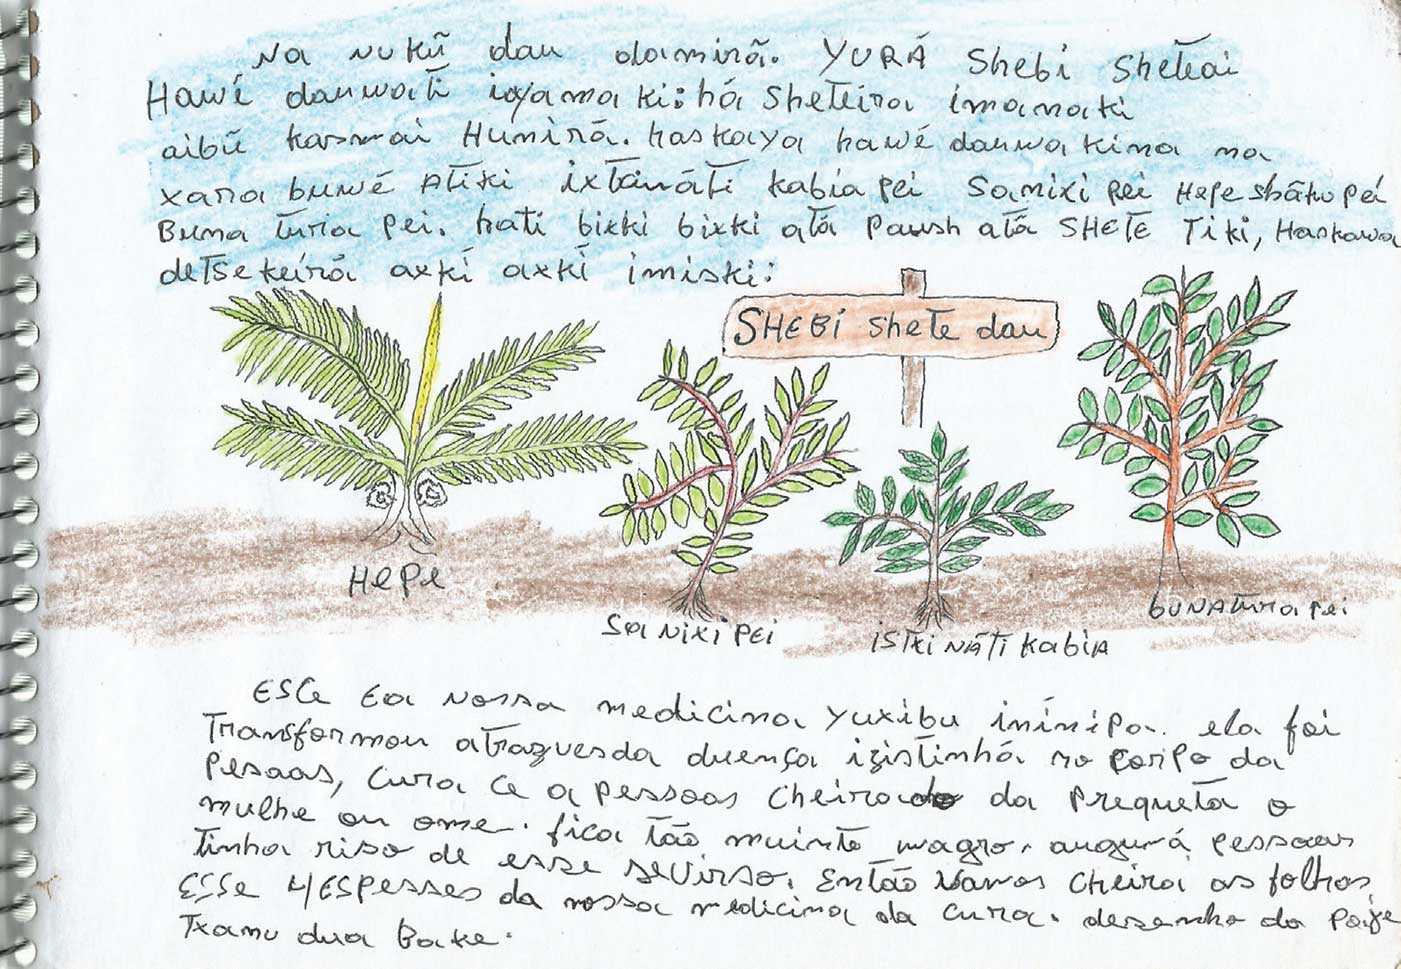 Na nukũ dau damirã. YURÁ Shebi Sheteai
Hawẽ dauwati iyamaki: há Sheteira imanaki
aibũ kasmai Hunirá. haskaya hawẽ dauwakina na
xara buwẽ Atiki ixtãnãti kabia pei Samixi pei Hepe shãku pei
Buna tura pei. hati bixki bixki atã Paush atã SHETE Tiki, Haskawa
detse keirá axkí axkí imiski:
SHEBI shete dau
HePe
Sa Nixi Pei
isTxi NÃTi KabiA
buNATura Pei
ESCe Ea Nossa medicina yuxibu ininipa. ela foi
Transformou atrazuesda duença izistinhá no corpo da
Pesaas, Cura Ce a pessoas Cheirado da Prequeta o
mulhe ou ome. fica tão muinto magro. augumá pessoas
tinha riso de esse serviso. Então Vamos Cheirá as folhas
Esse 4/ESPesses da nossa medicina da Cura. desenho do Paje
Txanu dua Bake.